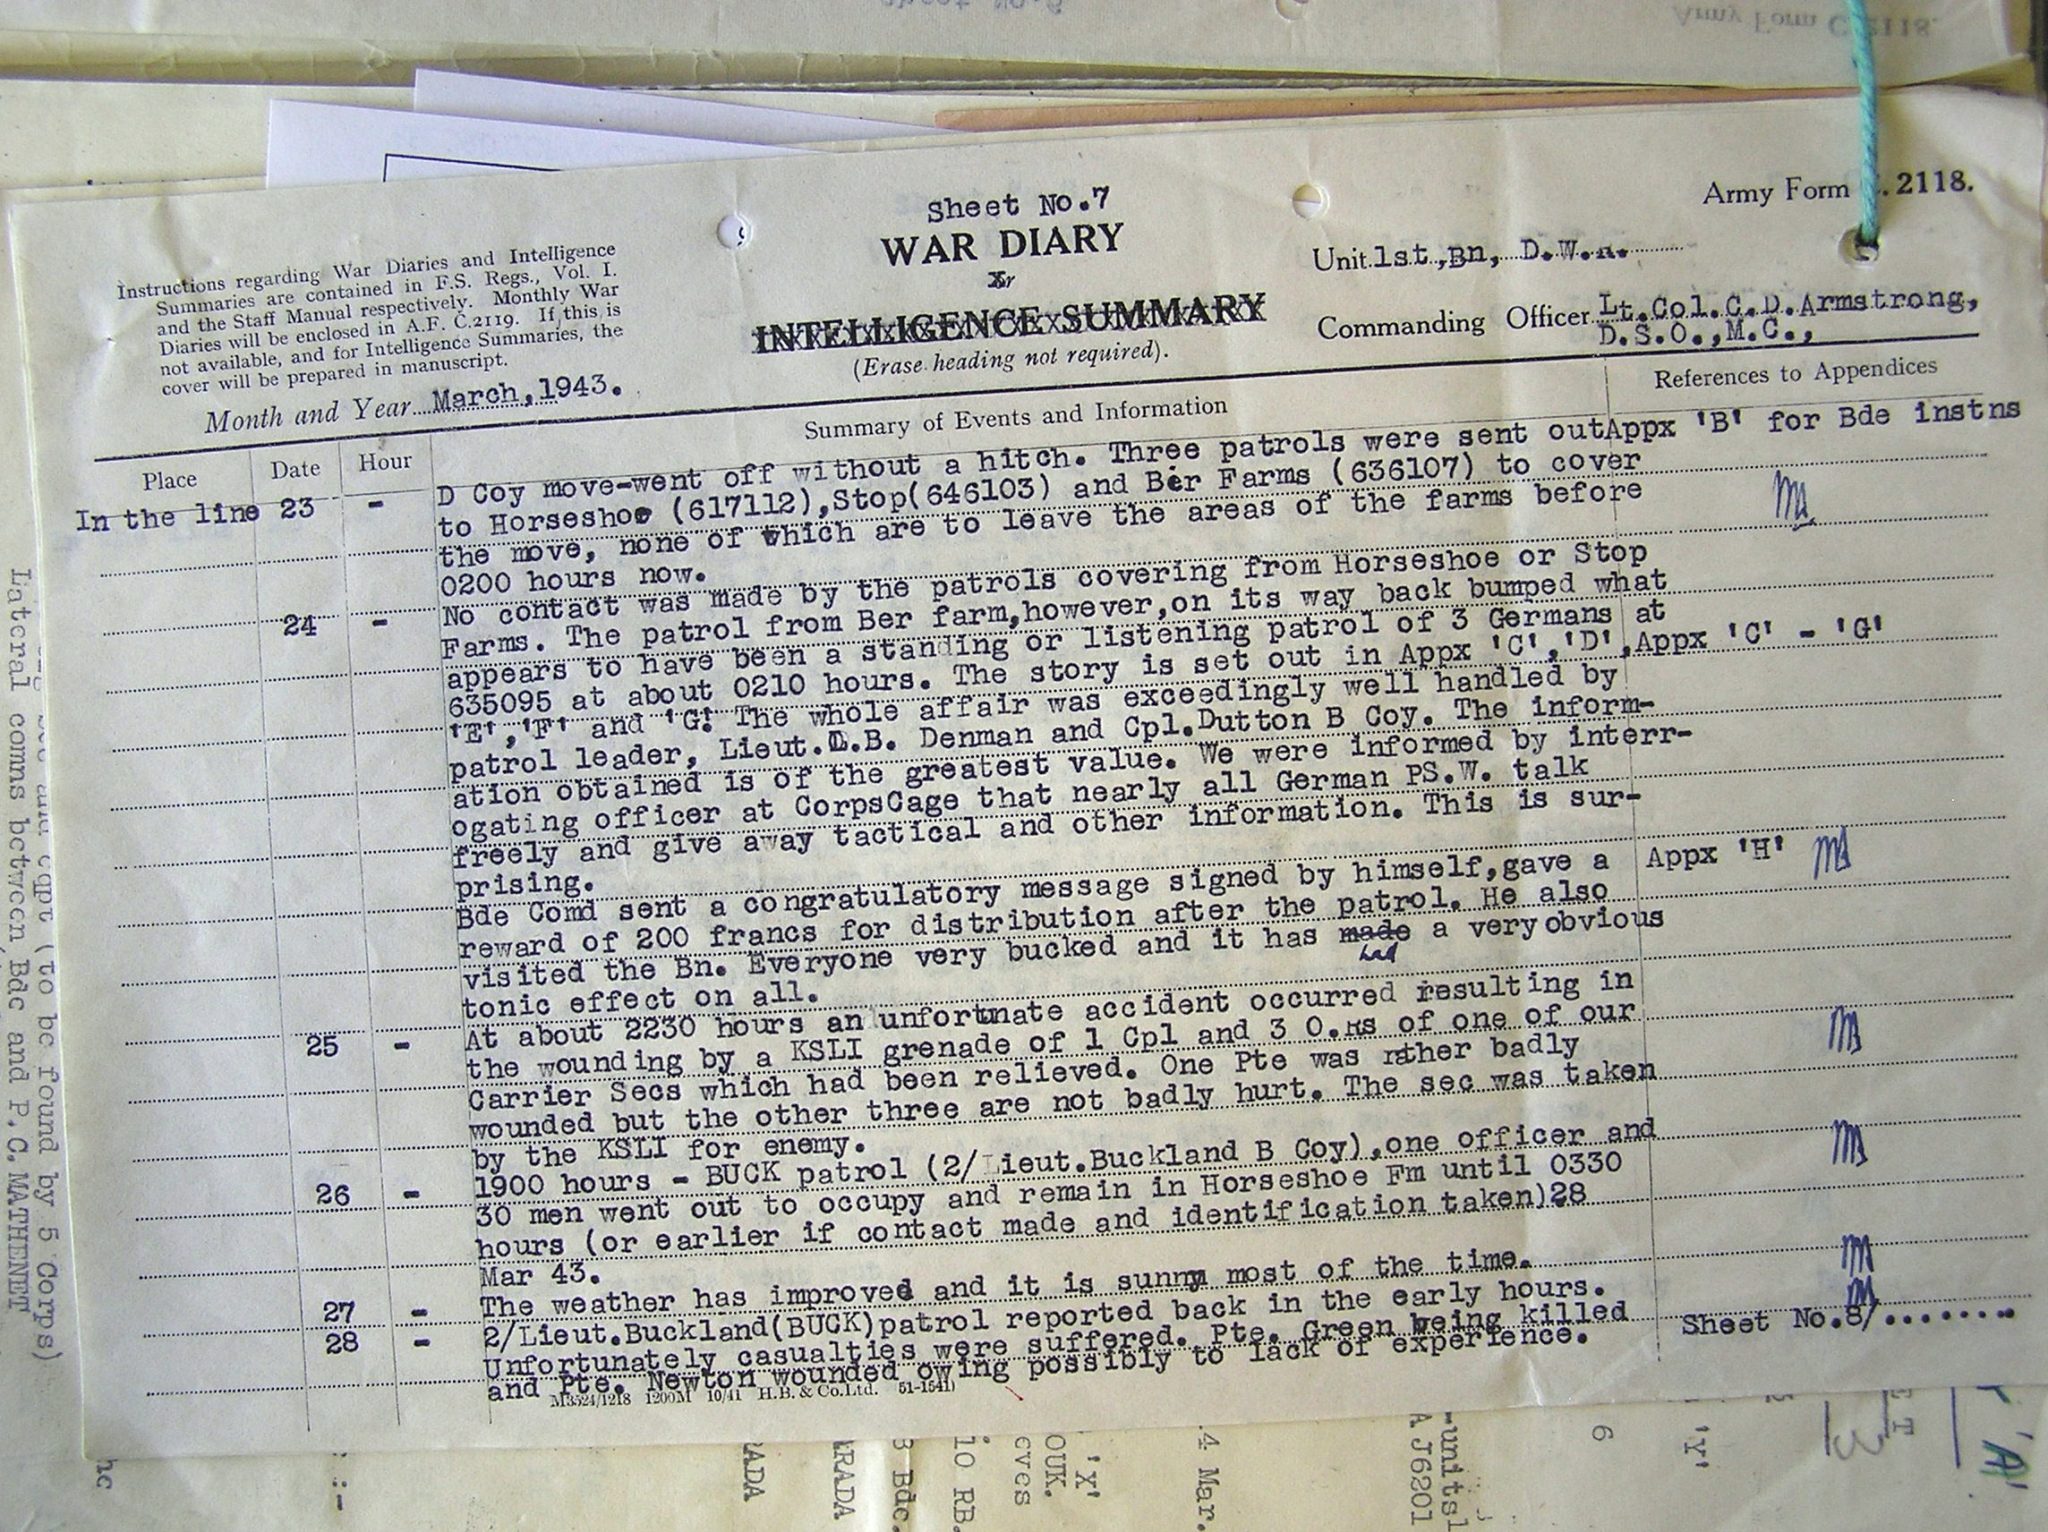 Sheet No.7
WAR DIARY
or
INTELLIGENCE SUMMARY
(Erase heading not required).
Army Form C. 2118.
Instructions regarding War Diaries and Intelligence
Summaries are contained in F.S. Regs., Vol. I.
and the Staff Manual respectively. Monthly War
Diaries will be enclosed in A.F. C.2119. If this is
not available, and for Intelligence Summaries, the
cover will be prepared in manuscript.
Month and Year March,1943.
Unit 1st,Bn, D.W.R.
Commanding Officer Lt.Col.C.D.Armstrong,
D.S.O.,M.C.,
Place Date Hour Summary of Events and Information References to Appendices
In the line 23 - D Coy move-went off without a hitch. Three patrols were sent out Appx 'B' for Bde instns
to Horseshoe (617112),Stop(646103) and Ber Farms (636107) to cover
the move, none of which are to leave the areas of the farms before
0200 hours now.
24 - No contact was made by the patrols covering from Horseshoe or Stop
Farms. The patrol from Ber farm,however,on its way back bumped what
appears to have been a standing or listening patrol of 3 Germans at
635095 at about 0210 hours. The story is set out in Appx 'C','D', Appx 'C' - 'G'
'E','F' and 'G'. The whole affair was exceedingly well handled by
patrol leader, Lieut. .B. Denman and Cpl.Dutton B Coy. The inform-
ation obtained is of the greatest value. We were informed by interr-
ogating officer at CorpsCage that nearly all German PS.W. talk
freely and give away tactical and other information. This is sur-
prising.
Bde Comd sent a congratulatory message signed by himself,gave a Appx 'H'
reward of 200 francs for distribution after the patrol. He also
visited the Bn. Everyone very bucked and it has made had a very obvious
tonic effect on all.
25 - At about 2230 hours an unfortunate accident occurred resulting in
the wounding by a KSLI grenade of 1 Cpl and 3 O.Rs of one of our
Carrier Secs which had been relieved. One Pte was rather badly
wounded but the other three are not badly hurt. The sec was taken
by the KSLI for enemy.
26 - 1900 hours - BUCK patrol (2/Lieut.Buckland B Coy),one officer and
30 men went out to occupy and remain in Horseshoe Fm until 0330
hours (or earlier if contact made and identification taken)28
Mar 43.
27 - The weather has improved and it is sunny most of the time.
28 - 2/Lieut.Buckland(BUCK)patrol reported back in the early hours.
Unfortunately casualties were suffered. Pte. Green being killed
and Pte. Newton wounded owing possibly to lack of experience.
Sheet No.8/........
M3524/1218 1200M 10/41 H.B. & Co.Ltd. 51-1541)
eqpt (to be found by 5 Corps)
Lateral comns between Bde and P.C.MATHENET
RADA
ARADA
Bdc.
10 RB.
eves
OUK.
'X'
4 Mar.
A J6201
-unitsl
6
'Y'
3
ET
'A'
Army Form C.2118.
Sheet No.